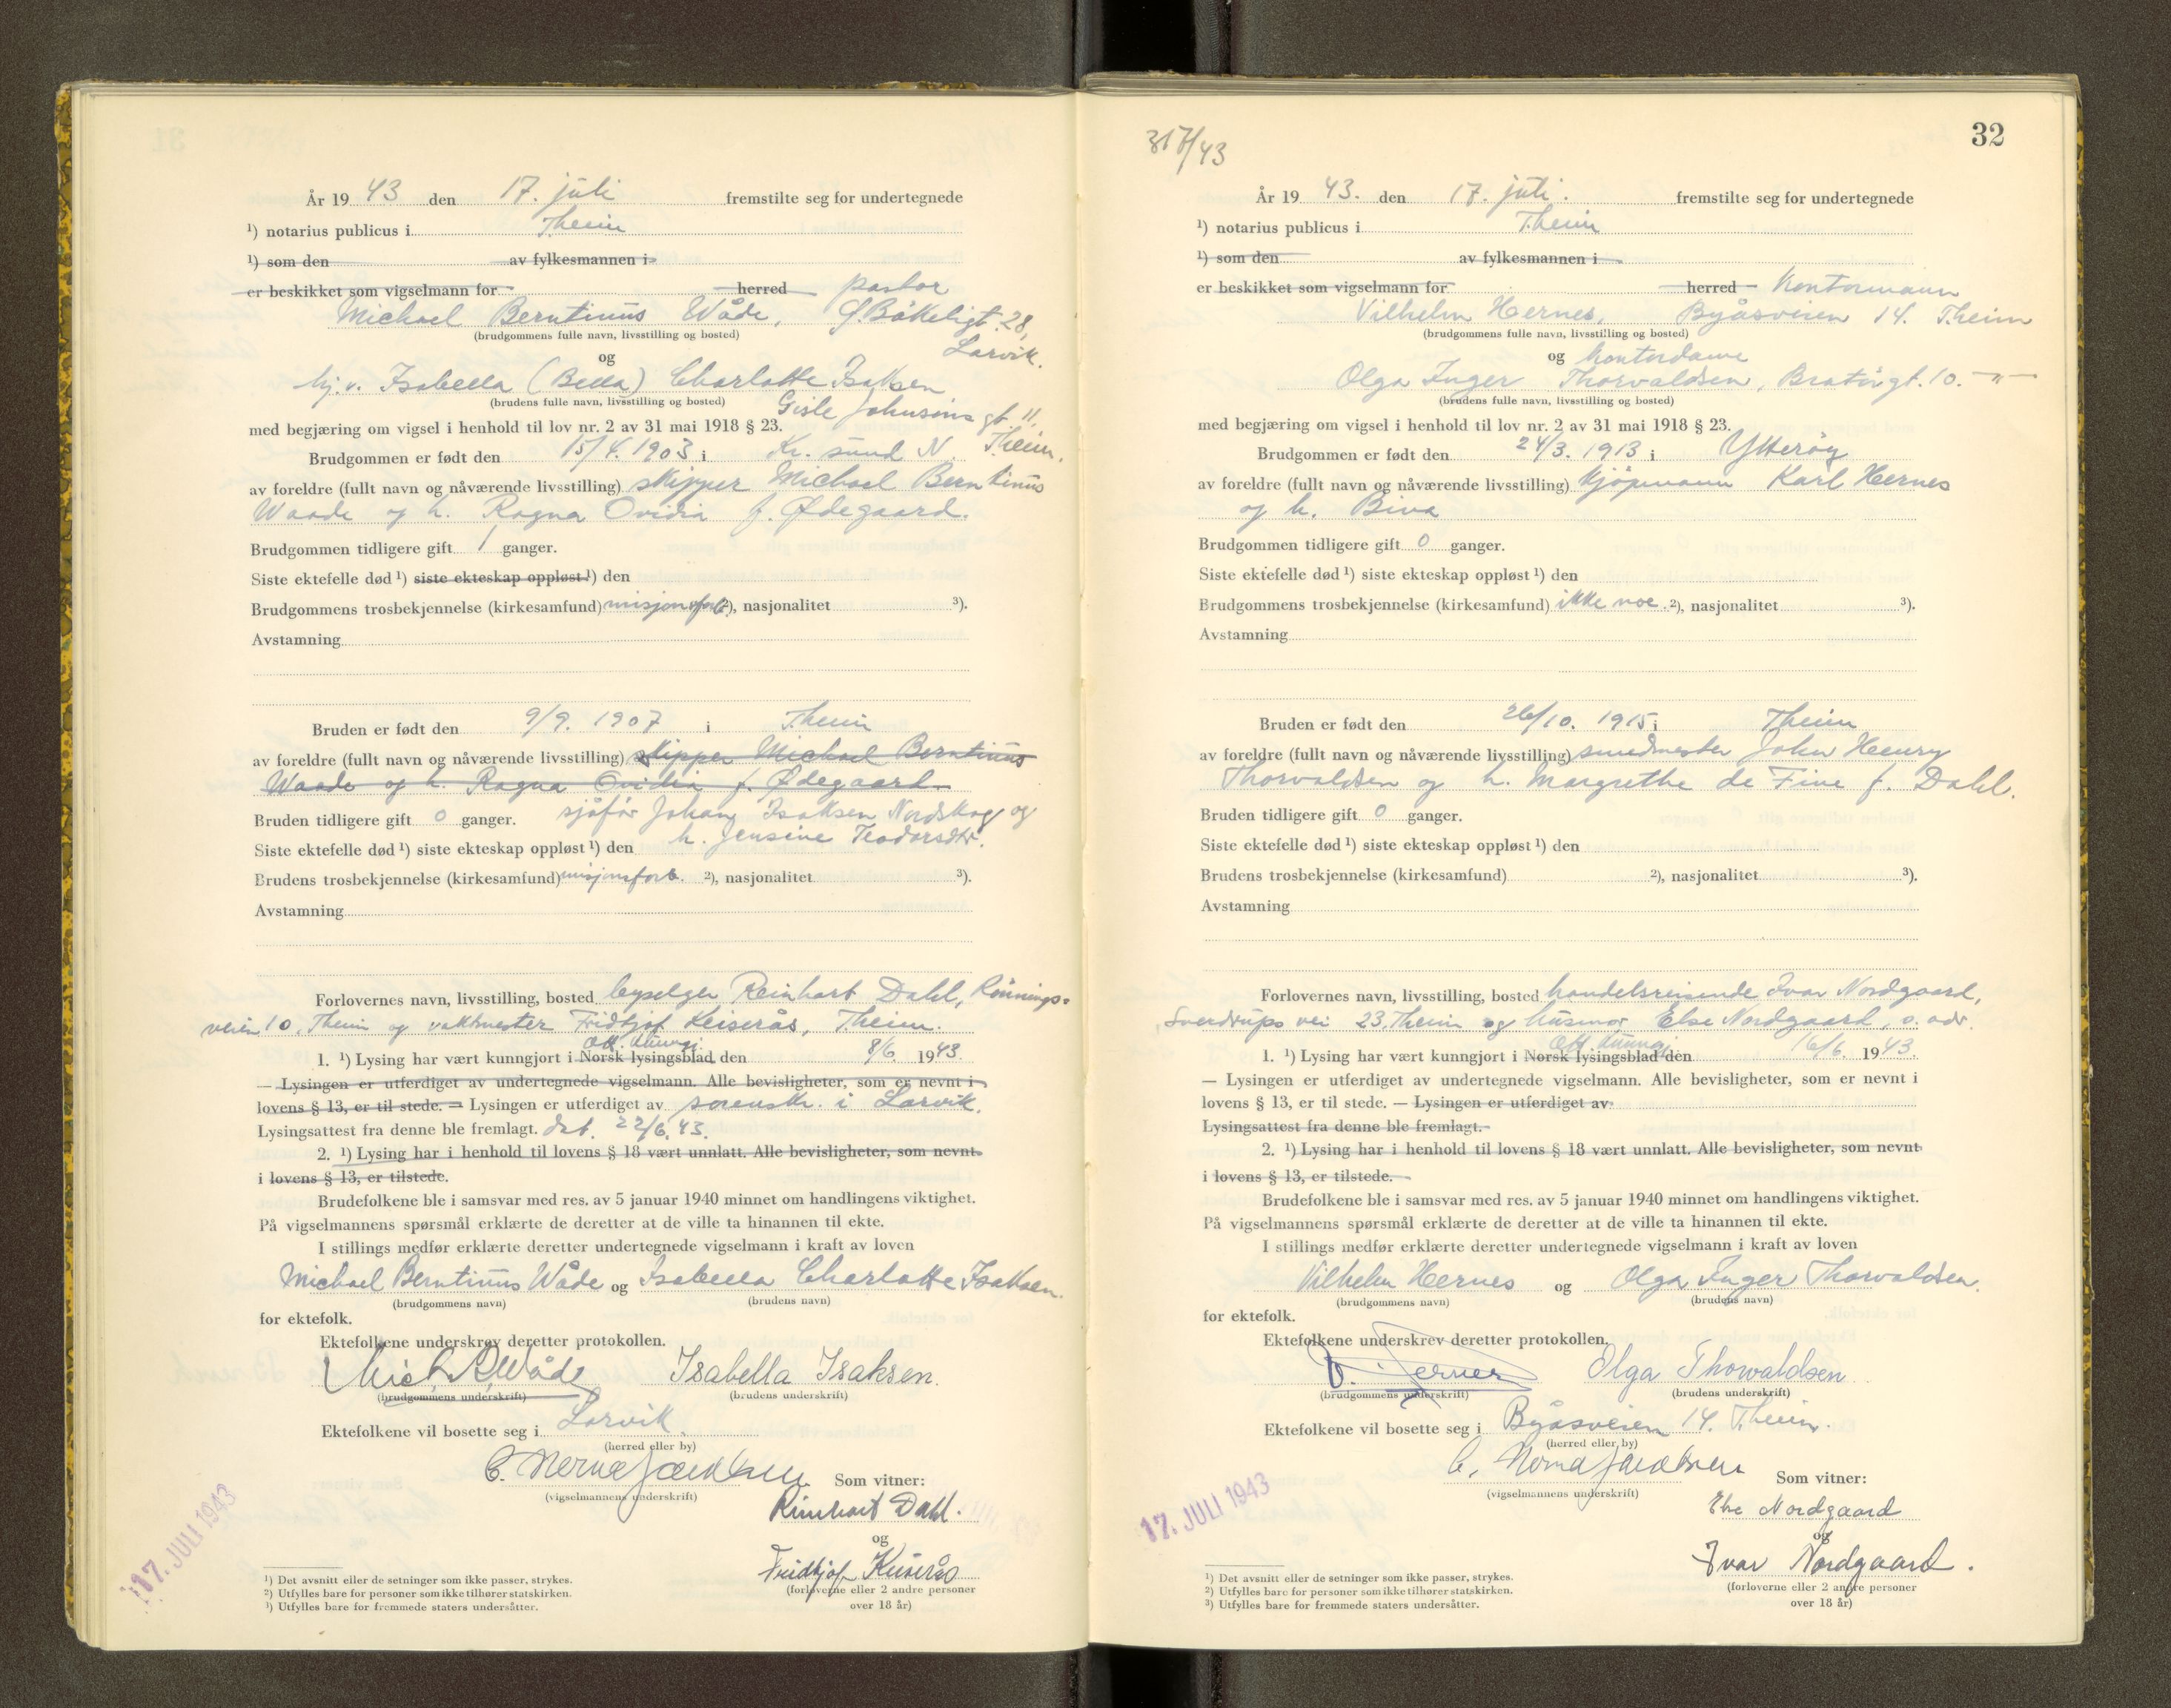 År 19 43 den 17. juli fremstilte seg for undertegnede
¹) notarius publicus i Theim
¹) som den av fylkesmannen i
er beskikket som vigselmann for herred pastor
Michael Berntinus Wåde, G. Bøkeligt. 28,
(brudgommens fulle navn, livsstilling og bosted) Larvik.
og
hj. v. Isabella (Bella) Charlotte Isaksen
(brudens fulle navn, livsstilling og bosted) Gisle Johnsons gt. 11,
med begjæring om vigsel i henhold til lov nr. 2 av 31 mai 1918 § 23. Theim.
Brudgommen er født den 15/4. 1903 i Kr. sund N.
av foreldre (fullt navn og nåværende livsstilling) skipper Michael Berntinus
Waade og h. Ragna Ovidia f. Ødegaard.
Brudgommen tidligere gift 1 ganger.
Siste ektefelle død ¹) siste ekteskap oppløst ¹) den
Brudgommens trosbekjennelse (kirkesamfund) misjonsforb. ²), nasjonalitet ³).
Avstamning
Bruden er født den 9/9. 1907 i Theim
av foreldre (fullt navn og nåværende livsstilling) skipper Michael Berntinus
Waade og h. Ragna Ovidia f. Ødegaard
Bruden tidligere gift 0 ganger. sjåfør Johan Isaksen Nordskag og
Siste ektefelle død ¹) siste ekteskap oppløst ¹) den h. Jensine Teodorsdtr.
Brudens trosbekjennelse (kirkesamfund) misjonsforb. ²), nasjonalitet ³).
Avstamning
Forlovernes navn, livsstilling, bosted Reinhart Dahl, Rønnings-
veien 10, Theim og vaktmester Fridtjof Keiserås, Theim.
Off. kunngj.
1. ¹) Lysing har vært kunngjort i Norsk lysingsblad den 8/6. 1943
— Lysingen er utferdiget av undertegnede vigselmann. Alle bevisligheter, som er nevnt i
lovens § 13, er til stede. — Lysingen er utferdiget av sorenskr. i Larvik.
Lysingsattest fra denne ble fremlagt. dat. 22/6. 43.
2. ¹) Lysing har i henhold til lovens § 18 vært unnlatt. Alle bevisligheter, som nevnt
i lovens § 13, er tilstede.
Brudefolkene ble i samsvar med res. av 5 januar 1940 minnet om handlingens viktighet.
På vigselmannens spørsmål erklærte de deretter at de ville ta hinannen til ekte.
I stillings medfør erklærte deretter undertegnede vigselmann i kraft av loven
Michael Berntinus Wåde og Isabella Charlotte Isaksen.
(brudgommens navn) (brudens navn)
for ektefolk.
Ektefolkene underskrev deretter protokollen.
Mich. B. Wåde Isabella Isaksen.
(brudgommens underskrift) (brudens underskrift)
Ektefolkene vil bosette seg i Larvik
(herred eller by)
Som vitner:
(vigselmannens underskrift)
Reinhart Dahl.
og
Fridtjof Keiserås
(forloverne eller 2 andre personer
over 18 år)
17. JULI 1943
¹) Det avsnitt eller de setninger som ikke passer, strykes.
²) Utfylles bare for personer som ikke tilhører statskirken.
³) Utfylles bare for fremmede staters undersåtter.
317/43
32
År 19 43. den 17. juli. fremstilte seg for undertegnede
¹) notarius publicus i Theim
¹) som den av fylkesmannen i
er beskikket som vigselmann for herred Kontormann
Vilhelm Hernes, Byåsveien 14. Theim
(brudgommens fulle navn, livsstilling og bosted)
og kontordame
Olga Inger Thorvaldsen, Bratørgt. 10. — " —
(brudens fulle navn, livsstilling og bosted)
med begjæring om vigsel i henhold til lov nr. 2 av 31 mai 1918 § 23.
Brudgommen er født den 24/3. 1913 i Ytterøy
av foreldre (fullt navn og nåværende livsstilling) kjøpmann Karl Hernes
og h. Biva
Brudgommen tidligere gift 0 ganger.
Siste ektefelle død ¹) siste ekteskap oppløst ¹) den
Brudgommens trosbekjennelse (kirkesamfund) ikke noe. ²), nasjonalitet ³).
Avstamning
Bruden er født den 26/10. 1915 i Theim
av foreldre (fullt navn og nåværende livsstilling) smedmester John Henry
Thorvaldsen og h. Margrethe de Fine f. Dahl.
Bruden tidligere gift 0 ganger.
Siste ektefelle død ¹) siste ekteskap oppløst ¹) den
Brudens trosbekjennelse (kirkesamfund) ²), nasjonalitet ³).
Avstamning
Forlovernes navn, livsstilling, bosted handelsreisende Ivar Nordgaard,
Sverdrups vei 23, Theim og husmor Else Nordgaard, s. adr.
Off. kunngj.
1. ¹) Lysing har vært kunngjort i Norsk lysingsblad den 16/6. 1943.
— Lysingen er utferdiget av undertegnede vigselmann. Alle bevisligheter, som er nevnt i
lovens § 13, er til stede. — Lysingen er utferdiget av
Lysingsattest fra denne ble fremlagt.
2. ¹) Lysing har i henhold til lovens § 18 vært unnlatt. Alle bevisligheter, som nevnt
i lovens § 13, er tilstede.
Brudefolkene ble i samsvar med res. av 5 januar 1940 minnet om handlingens viktighet.
På vigselmannens spørsmål erklærte de deretter at de ville ta hinannen til ekte.
I stillings medfør erklærte deretter undertegnede vigselmann i kraft av loven
Vilhelm Hernes og Olga Inger Thorvaldsen.
(brudgommens navn) (brudens navn)
for ektefolk.
Ektefolkene underskrev deretter protokollen.
V. Hernes Olga Thorvaldsen
(brudgommens underskrift) (brudens underskrift)
Ektefolkene vil bosette seg i Byåsveien 14. Theim.
(herred eller by)
Som vitner:
(vigselmannens underskrift)
Else Nordgaard
og
Ivar Nordgaard.
(forloverne eller 2 andre personer
over 18 år)
17. JULI 1943
¹) Det avsnitt eller de setninger som ikke passer, strykes.
²) Utfylles bare for personer som ikke tilhører statskirken.
³) Utfylles bare for fremmede staters undersåtter.